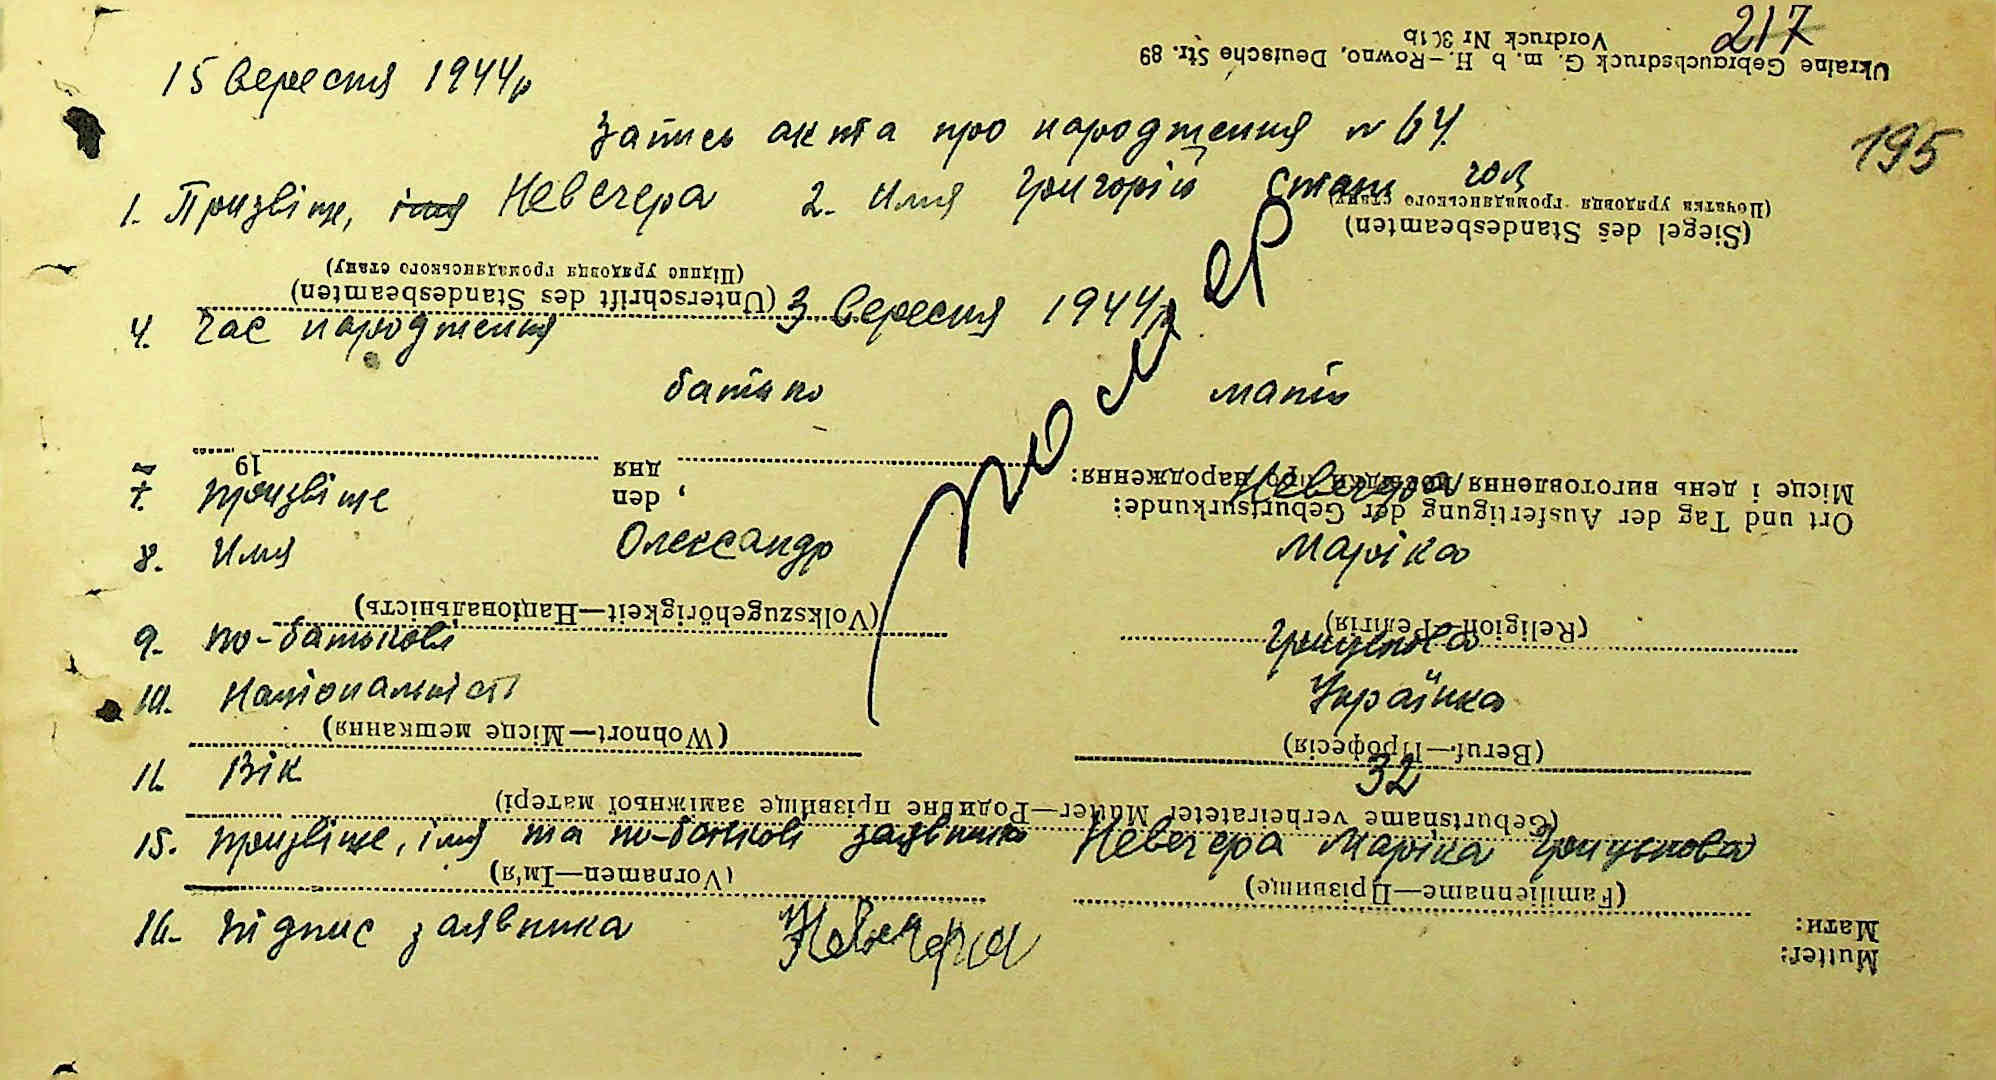 217
15 вересня 1944р
Запись акта про народження № 64.
195
1. Призвіще, імя Невечера 2. Имя Григорій Стать чол
4. Час народження 3 вересня 1944р
батько мать
7. призвіще Невечера
8. Имя Олександр Маріка
9. по-батькові Грицькова
10. Національність Українка
11. Вік 32
15. призвіще, імя та по-батькові заявника Невечера Маріка Грицькова
16. підпис заявника Невечера
помер
Mutter:
Мати:
(Familienname—Прізвище)
(Vornamen—Ім'я)
(Geburtsname verheirateter Mutter—Родинне прізвище заміжньої матері)
(Beruf—Професія)
(Wohnort—Місце мешкання)
(Religion—Релігія)
(Volkszugehörigkeit—Національність)
Ort und Tag der Ausfertigung der Geburtsurkunde:
Місце і день виготовлення довідки про народження:
, den
дня
19
(Unterschrift des Standesbeamten)
(Підпис урядовця громадянського стану)
(Siegel des Standesbeamten)
(Початка урядовця громадянського стану)
Ukraine Gebrauchsdruck G. m. b H.—Rowno, Deutsche Str. 89
Vordruck Nr 301b